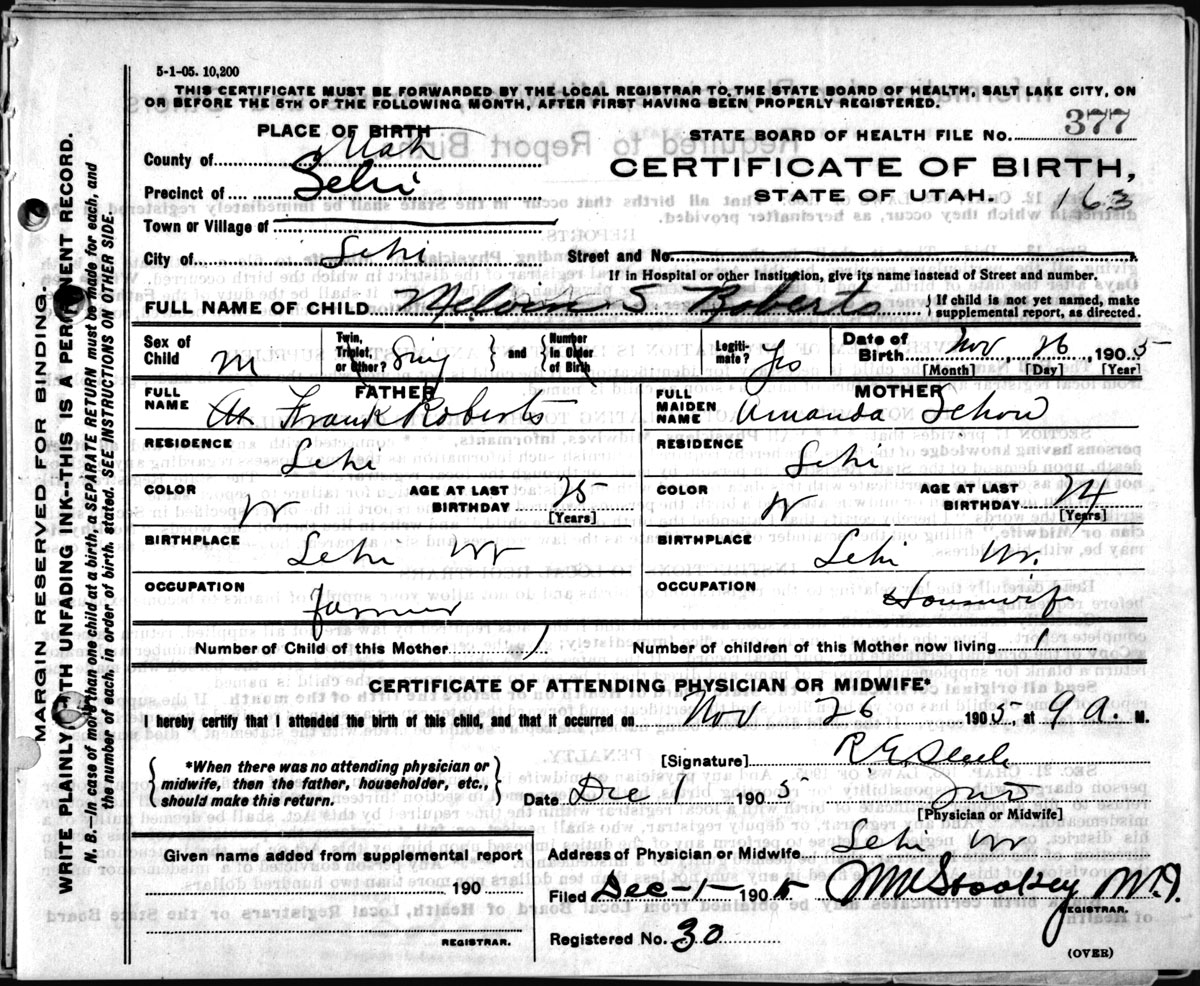 5-1-05. 10,200
THIS CERTIFICATE MUST BE FORWARDED BY THE LOCAL REGISTRAR TO THE STATE BOARD OF HEALTH, SALT LAKE CITY, ON
OR BEFORE THE 5TH OF THE FOLLOWING MONTH, AFTER FIRST HAVING BEEN PROPERLY REGISTERED.
PLACE OF BIRTH
STATE BOARD OF HEALTH FILE NO. 377
County of Utah
CERTIFICATE OF BIRTH,
Precinct of Lehi
STATE OF UTAH. 163
Town or Village of
City of Lehi Street and No.
If in Hospital or other Institution, give its name instead of Street and number.
FULL NAME OF CHILD S Roberts { If child is not yet named, make supplemental report, as directed.
Sex of Child M Twin, Triplet, or Other? Sing } and { Number in Order of Birth Legiti-mate? Yes Date of Birth Nov 26 1905
[Month] [Day] [Year]
FATHER MOTHER
FULL NAME Frank Roberts FULL MAIDEN NAME Amanda Schow
RESIDENCE Lehi RESIDENCE Lehi
COLOR W AGE AT LAST BIRTHDAY 25 [Years] COLOR W AGE AT LAST BIRTHDAY 24 [Years]
BIRTHPLACE Lehi Ut BIRTHPLACE Lehi Ut.
OCCUPATION Farmer OCCUPATION Housewife
Number of Child of this Mother 1 Number of children of this Mother now living 1
CERTIFICATE OF ATTENDING PHYSICIAN OR MIDWIFE*
I hereby certify that I attended the birth of this child, and that it occurred on Nov 26 1905 at 9 A. M.
{ *When there was no attending physician or midwife, then the father, householder, etc., should make this return. }
[Signature] R E Steele
Date Dec 1 1905
[Physician or Midwife]
Given name added from supplemental report
Address of Physician or Midwife Lehi Ut
190
Filed Dec-1-1905 M.D.
REGISTRAR.
REGISTRAR.
Registered No. 30
(OVER)
MARGIN RESERVED FOR BINDING.
WRITE PLAINLY WITH UNFADING INK--THIS IS A PERMANENT RECORD.
N. B.—In case of more than one child at a birth, a SEPARATE RETURN must be made for each, and
the number of each, in order of birth, stated. SEE INSTRUCTIONS ON OTHER SIDE.